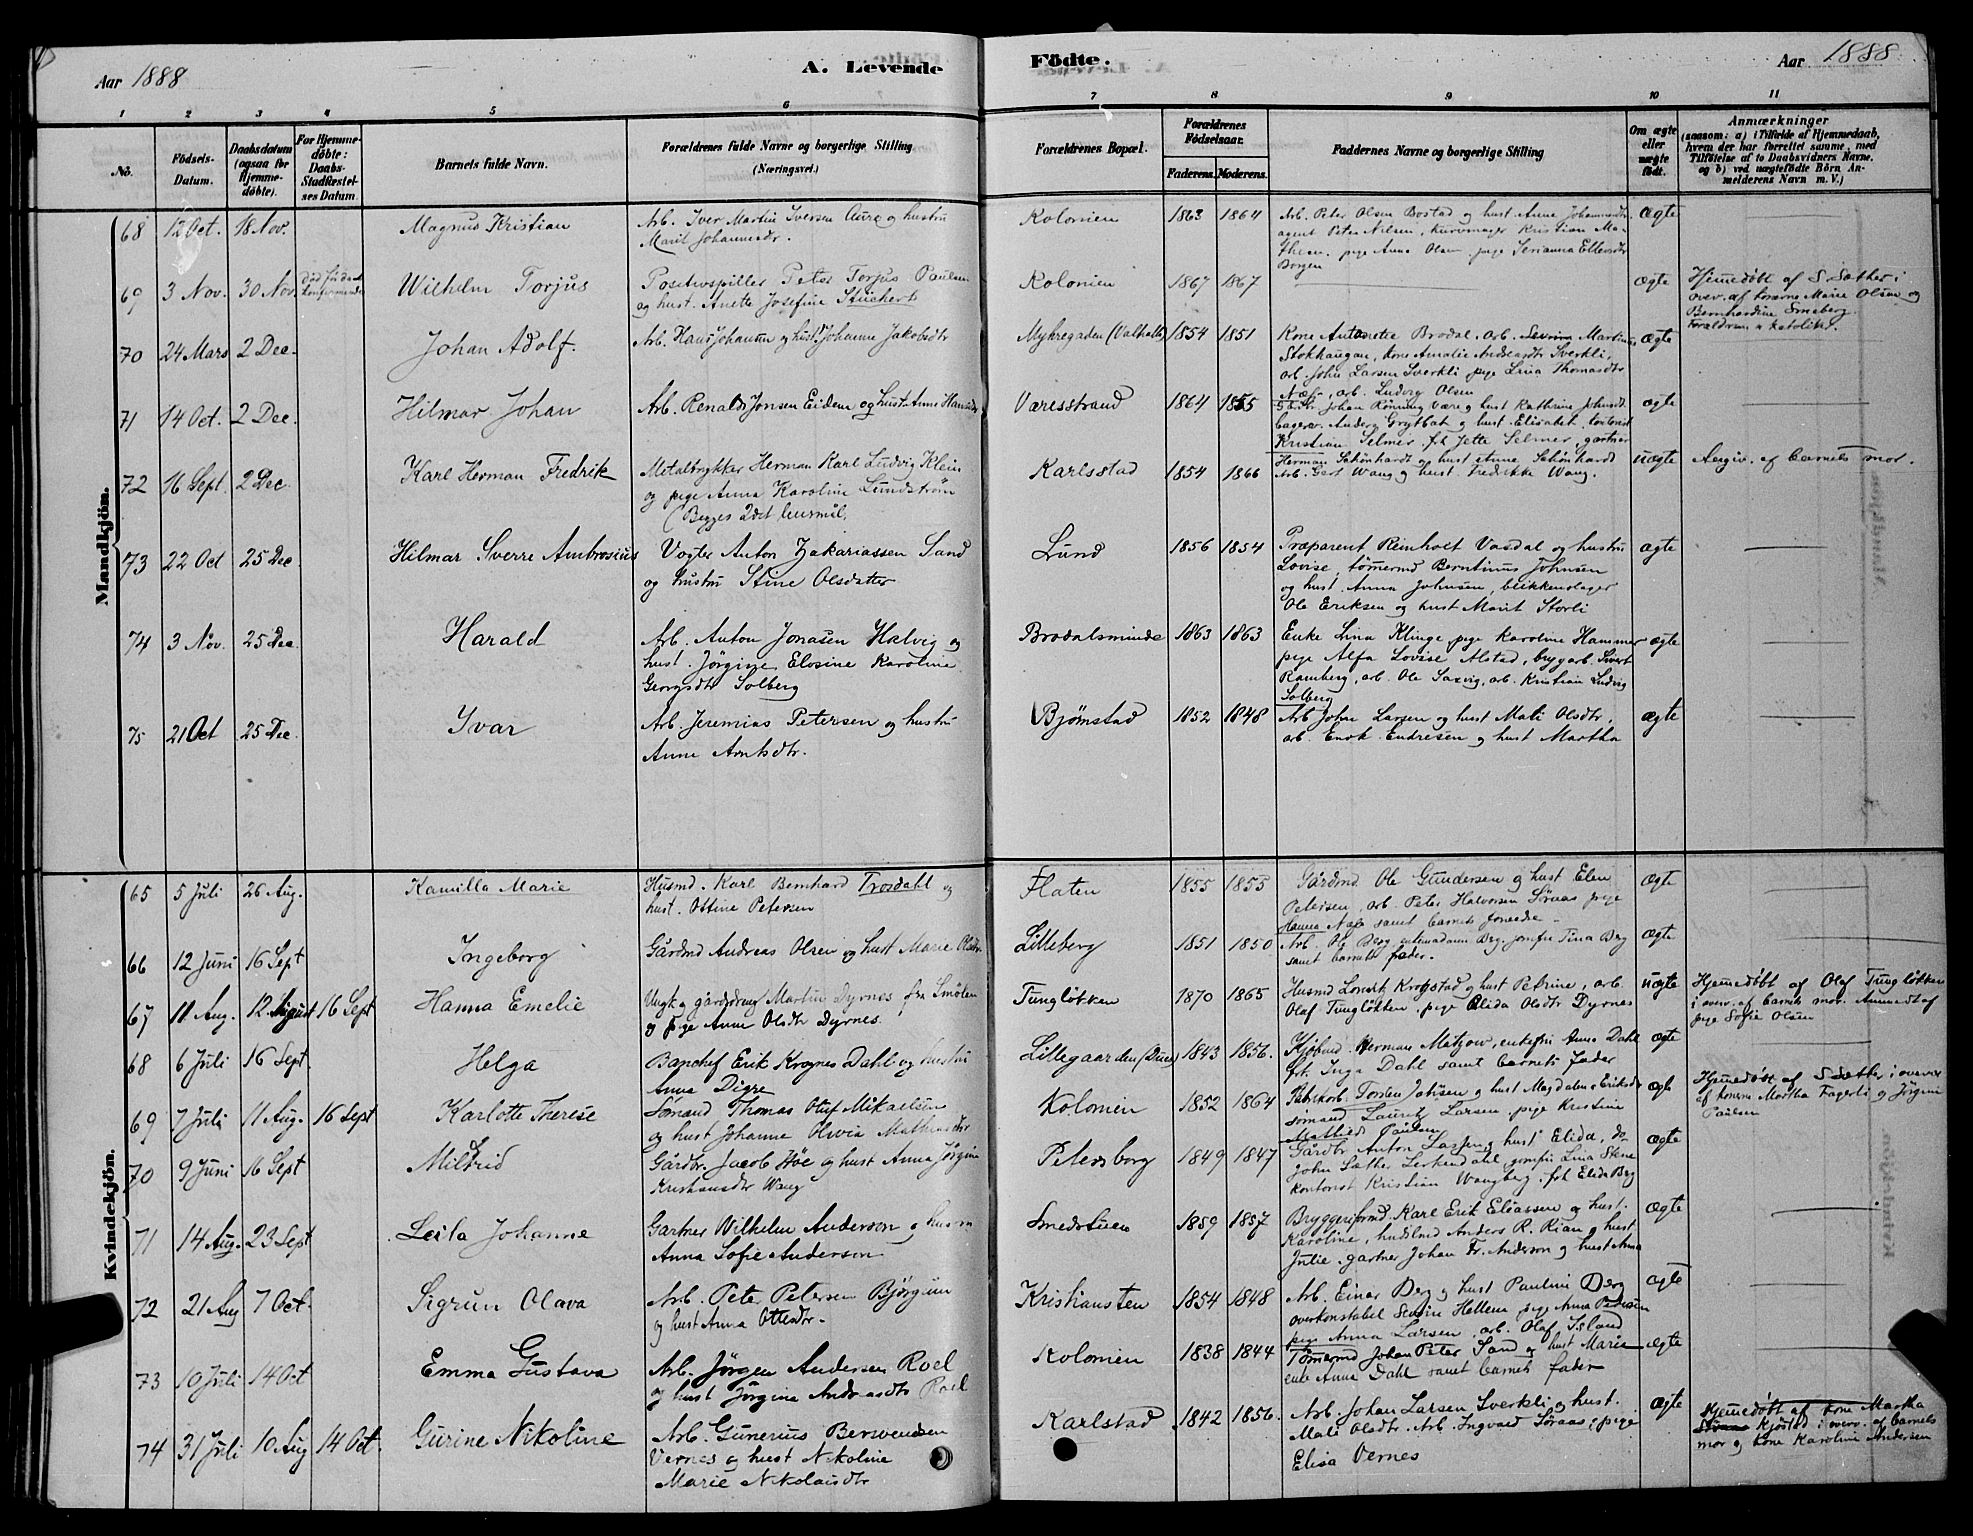 Aar 1888
A. Levende
Fødte.
Aar 1888
1 2 3 4 5 6 7 8 9 10 11
No.
Fødsels-
Datum.
Daabsdatum
(ogsaa for
Hjemme-
døbte).
For Hjemme-
døbte:
Daabs-
Stadfæstel-
ses Datum.
Barnets fulde Navn.
Forældrenes fulde Navne og borgerlige Stilling
(Næringsvei.)
Forældrenes Bopæl.
Forældrenes
Fødselsaar.
Faderens. Moderens.
Faddernes Navne og borgerlige Stilling
Om ægte
eller
uægte
født.
Anmærkninger
(saasom: a) i Tilfælde af Hjemmedaab,
hvem der har forrettet samme, med
Tilføielse af to Daabsvidners Navne.
og b) ved uægtefødte Børn An-
melderens Navn m. V.)
Mandkjøn.
68 12 Oct. 18 Nov. Magnus Kristian
Arb. Iver Martin Iversen Aure og hustru
Marit Johannesdr.
Kolonien 1863 1864
Arb. Peter Olsen Bostad og hust Anne Johannesdr.
agent Peter Nilsen, kurvmager Kristian Ma-
thesen, pige Anna Olsen, pige Serianna Ellersdr
Borgen
Ægte
69 3 Nov. 30 Nov. Død før daab
Wilhelm Torjus
Positivspiller Peter Torjus Paulsen
og hust. Anette Josefine Stückert
Kolonien 1867 1867
ægte
Hjemedøbt af S Sæther i
overv. af konerne Marie Olsen og
Bernhardine Smeberg.
Forældrene katolik.
70 24 Mars 2 Dec. Johan Adolf.
Arb. Hans Johansen og hust Johanne Jakobsdtr
Myhregaden (Valhalla) 1854 1851
Kone Antonette Brodal, arb. Martinus
Stokhaugan, kone Amalie Andreasdtr Sverkli,
arb. John Larsen Sverkli pige Lina Thomasdtr
Næss, arb. Ludvig Olsen
Ægte
71 14 Oct. 2 Dec. Hilmar Johan
Arb. Renald Jonsen Eidem og hust. Anne Hansdr
Væresstrand 1864 1855
Gårdbr. Johan Rønning Være og hust Kathrine Johnsdt.
bagersv. Anders Grytbak og hust. Elisabet, kontorist
Kristian Selmer, frk Jette Selmer, gartner
Herman Schönhardt og hust Anne Schönhardt
ægte
72 16 Sept. 2 Dec. Karl Herman Fredrik
Metaltrykker Herman Karl Ludvig Klein
og pige Anna Karoline Lundstrøm
(Begges 2det leiermål.
Karlsstad 1854 1866
Arb. Gert Wang og hust. Fredrikke Wang.
uægte
Angiv. af barnets mor.
73 22 Oct 25 Dec Hilmar Sverre Ambrosius
Vogter Anton Zakariassen Sand
og hustru Stine Olsdatter
Lund 1856 1854
Præparent Reinholt Vasdal og hustru
Lovise, tømermd Berntinus Johnsen
og hust. Anna Johnsen, blikkenslager
Ole Eriksen og hust Marit Storli
ægte
74 3 Nov. 25 Dec. Harald
Arb. Anton Jonasen Halvig og
hust. Jørgine Elosine Karoline
Georgsdtr Solberg
Brodalsminde 1863 1863
Enke Lina Klinge pige Karoline Hammer
pige Alfa Lovise Alstad, brygarb. Sivert
Ramberg, arb. Ole Saxvig, arb. Kristian Ludvig
Solberg
ægte
75 21 Oct 25 Dec. Yvar
Arb. Jeremias Petersen og hustru
Anne Arntsdtr.
Bjørnstad 1852 1848
Arb John Larsen og hust Mali Olsdtr,
arb. Enok Endresen og hust Martha
ægte
Kvindekjøn.
65 5 Juli 26 Aug. Kamilla Marie
Husmd. Karl Bernhard Trosdahl og
hust. Ottine Petersen
Flaten 1855 1855
Gårdmd. Ole Gundersen og hust Elen
Petersen, arb. Peter Halvorsen Søraas pige
Hanna Næss samt barnets forældre.
Ægte
66 12 Juni 16 Sept Ingeborg
Gårdmd Andreas Olsen og hust Marie Olsdtr
Lilleberg 1851 1850
Arb. Ole Berg, enkemadam Berg, jomfru Tina Berg
samt barnets fader.
ægte
67 11 Aug. 12 August 16 Sept Hanna Emelie
Ungk. og gårdsdreng Martin Dyrnes fra Smølen
og pige Anne Olsdtr Dyrnes.
Tungløkken 1870 1865
Husmd Lorentz Krogstad og hust Petrine, arb.
Olaf Tungløkken, pige Elida Olsdtr Dyrnes
uægte
Hjemedøbt af Olaf Tungløkken
i overv. af barnets mor. Anmeldt af
pige Sofie Olsen
68 6 Juli 16 Sept. Helga
Banchef Erik Krognes Dahl og hustru
Anna Digre
Lillegaarden 1843 1856.
Kjøbmd. Herman Matzow, enkefru Anna Dahl
frk. Inga Dahl samt barnets fader
ægte
69 7 Juli 11 Aug. 16 Sept Karlotte Therese
Sømand Thomas Oluf Mikaelsen
og hust Johanne Olivia Mathiasdtr
Kolonien 1852 1864
Fabrikarb. Torsten Johsen og hust Magdalene Eriksdtr
sømand Lauritz Larsen, pige Kristine
Mathea Paulsen
ægte
Hjemedøbt af S Sæther i overvær
af konerne Martha Fagerli og Jørgine
Paulsen
70 9 Juni 16 Sept Mildrid
Gårdbr. Jacob Høe og hust Anna Jørgine
Kristiansdtr Wang
Petersborg 1849 1847
Gårdbr Anton Lassen og hust Elida, do
John Sæther Lerkendahl, jomfru Lina Skene
kontorist Kristian Wangberg, frk Elida Berg
ægte
71 14 Aug. 23 Sept Leila Johanne
Gartner Wilhelm Anderson og hustru
Anna Sofie Anderson
Smedstuen 1859 1857
Bryggeriformd. Karl Erik Eliassen og hust.
Karoline, Anders R. Rian og hust
Julie, gartner Johan Fr. Anderson og hust Anna
ægte
72 21 Aug 7 Oct. Sigrun Olava
Arb. Peter Petersen Bjørgum
og hust Anna Ottesdtr.
Kristiansten 1854 1848
Arb. Einar Berg og hust Pauline Berg
overkonstabel Sevrin Hellem, pige Anna Pedersen
pige Anna Larsen, arb. Olaf Island
ægte
73 10 Juli 14 Oct Emma Gustava
Arb. Jørgen Andersen Roel
og hust Jørgine Andreasdtr Roel
Kolonien 1838 1844
Tømermd Johan Peter Sand og hust Marie
enke Anna Dahl samt barnets fader
ægte
74 31 Juli 10 Aug 14 Oct. Gurine Nikoline
Arb. Gunerius Berwendsen
Vernes og hust Nikoline
Marie Nikolaisdtr
Karlstad 1842 1856.
Arb. Johan Larsen Sverkli og hust.
Mali Olsdtr. Arb. Ingvald Søraas, pige
Elisa Vernes
Ægte
Hjemedøbt af kone Martha
Kjøstad i overv. af barnets
mor og kone Karoline Andersen